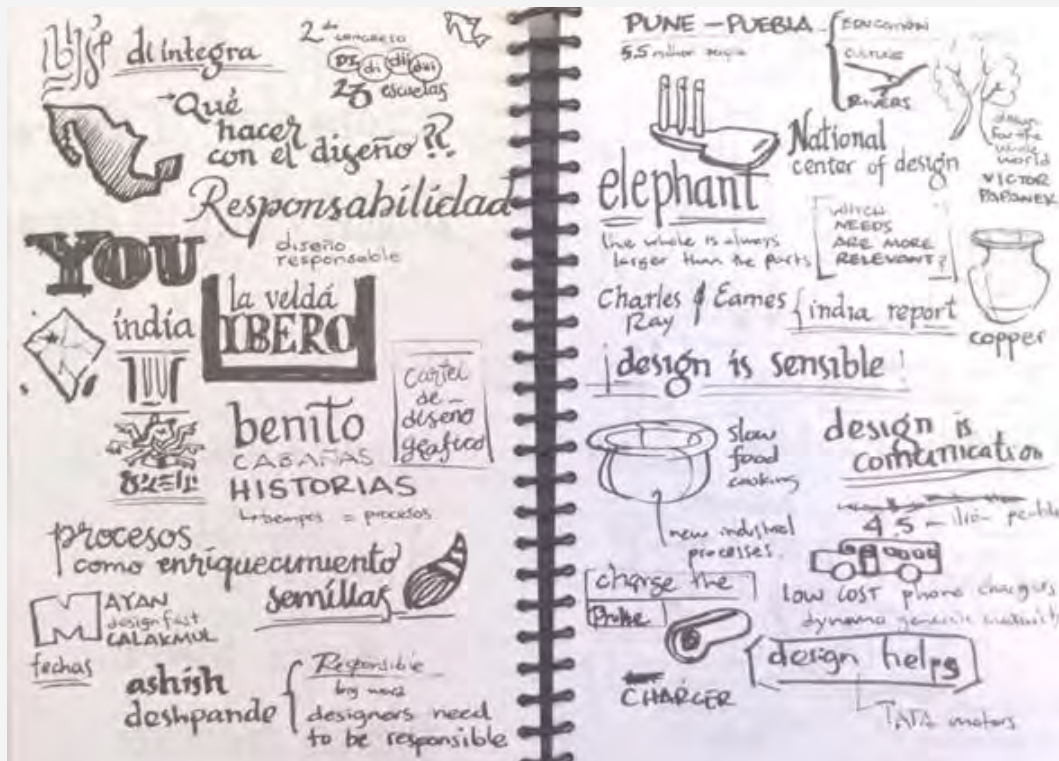 di integra
2 do congreso
DI di dii dui
23 escuelas
→Qué
hacer
con el diseño??
Responsabilidad
YOU
diseño
responsable
india
la veldá
IBERO
cartel
de
diseño
gráfico
benito
CABAÑAS
HISTORIAS
↳ tiempos = procesos
procesos
como enriquecimiento
semillas
MAYAN
design fest
CALAKMUL
fechas
ashish
deshpande
Responsible
designers need
to be responsible
PUNE - PUEBLA
5.5 million people
EDUCATION
CULTURE
RIVERS
design
for the
whole
world
VICTOR
PAPANEK
National
center of design
elephant
the whole is always
larger than the parts
WHICH
NEEDS
ARE MORE
RELEVANT?
Charles & Eames
Ray
india report
copper
¡design is sensible!
slow
food
cooking
design is
comunication
new industrial
processes.
4,5
charge the
LOW COST phone chargers
dynamo
design helps
CHARGER
TATA motors